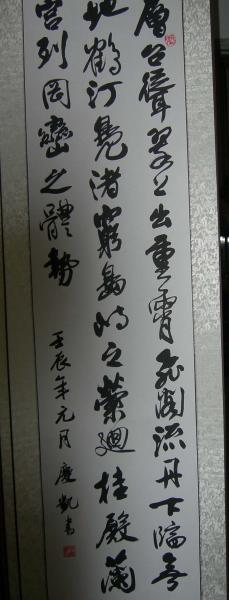 層台聳翠上出重霄飛閣流丹下臨無
地鶴汀鳧渚窮島嶼之縈迴桂殿蘭
宮列岡巒之體勢
壬辰年元月慶凱書